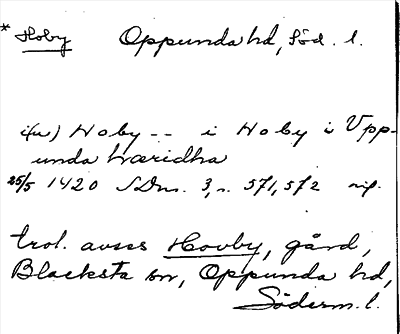 * Hoby Oppunda hd, Söd. l.
i(u) Hoby -- i Hoby i Vpp-
unda hæridha
25/5 1420 SDns. 3, s. 571, 572
trol. avses Hovby, gård,
Blacksta sn, Oppunda hd,
Söderm. l.